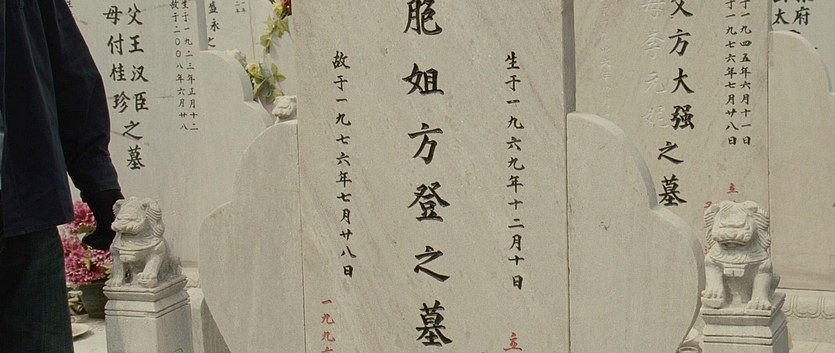 父王汉臣
母付桂珍
之墓
生于一九二三年五月十二
故于二〇〇八年六月廿八
盛永之
生于一九六九年十二月十日
胞姐方登之墓
故于一九七六年七月廿八日
立
一九九
生于一九四五年六月十一日
故于一九七六年七月廿八日
父方大强
母李元妮
之墓
立
府
太